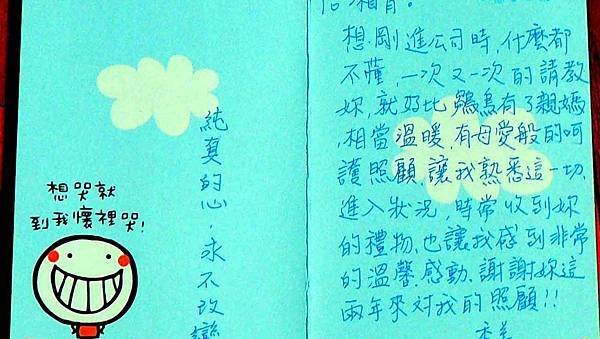 想哭就
到我懷裡哭!
純真的心,永不改變
想剛進公司時,什麼都
不懂,一次又一次的請教
妳,就好比鷄鳥有了親媽
,相當溫暖,有母愛般的呵
護照顧,讓我熟悉這一切,
進入狀況,時常收到妳
的禮物,也讓我感到非常
的溫馨、感動,謝謝妳這
兩年來對我的照顧!!